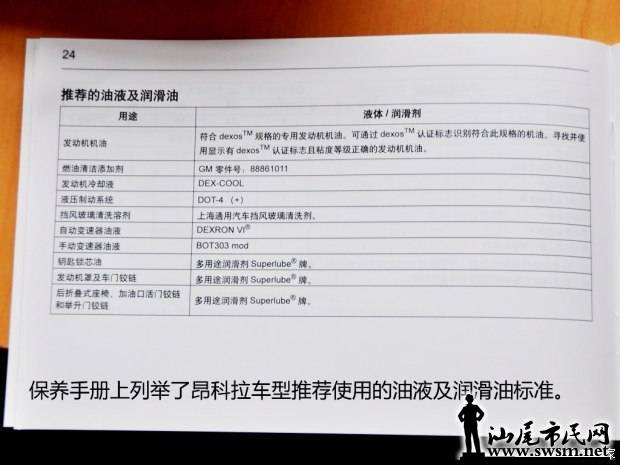 24
推荐的油液及润滑油
用途 液体 / 润滑剂
发动机机油 符合 dexos™ 规格的专用发动机机油。可通过 dexos™ 认证标志识别符合此规格的机油。寻找并使
用显示有 dexos™ 认证标志且粘度等级正确的发动机机油。
燃油清洁添加剂 GM 零件号：88861011
发动机冷却液 DEX-COOL
液压制动系统 DOT-4 （+）
挡风玻璃清洗溶剂 上海通用汽车挡风玻璃清洗剂。
自动变速器油液 DEXRON VI®
手动变速器油液 BOT303 mod
钥匙锁芯油 多用途润滑剂 Superlube® 牌。
发动机罩及车门铰链 多用途润滑剂 Superlube® 牌。
后折叠式座椅、加油口活门铰链
和举升门铰链 多用途润滑剂 Superlube® 牌。
保养手册上列举了昂科拉车型推荐使用的油液及润滑油标准。
汕尾市民网
www.swsm.net